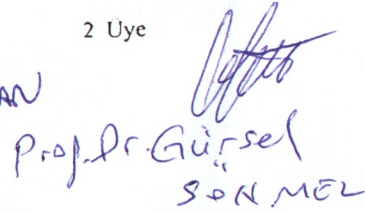 2 Üye
AN
Prof. Dr. Gürsel
SÖNMEZ